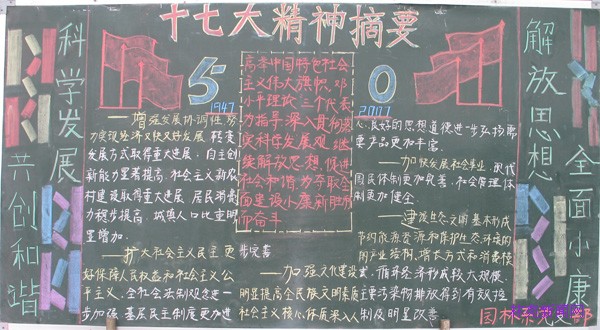 十七大精神摘要
科学发展
共创和谐
解放思想
全面小康
50
1947
2007
高举中国特色社会
主义伟大旗帜,邓
小平理论三个代表
为指导深入贯彻落
实科学发展观,继
续解放思想,促进
社会和谐,为夺取全
面建设小康新胜利
而奋斗
——增强发展协调性,努
力实现经济又快又好发展,转变
发展方式取得重大进展,自主创
新能力显著提高,社会主义新农
村建设取得重大进展,居民消费
力稳步提高,城镇人口比重明
显增加.
——扩大社会主义民主更
好保障人民权益和社会主义公
平正义,全社会法制观念进一
步加强,基层民主制度更加进
步完善
——加强文化建设
明显提高全民族文明素质
社会主义核心体质深入
人心,良好的思想道德进一步弘扬
产品更加丰富.
——加快发展社会事业,现代
国民体制更加完善,社会管理体
制更加健全.
——建设生态文明,基本形成
节约能源资源和保护生态环境的
的产业结构,增长方式和消费模
式,循环经济形成较大规模.
主要污染物排放得到有效控
制,明显改善
园林系宣传部